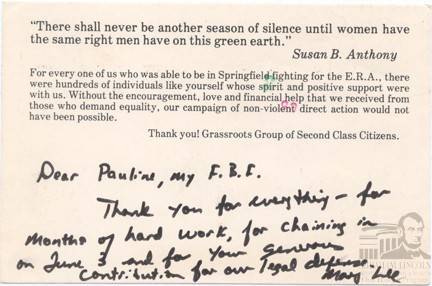 "There shall never be another season of silence until women have
the same right men have on this green earth."
Susan B. Anthony
For every one of us who was able to be in Springfield fighting for the E.R.A., there
were hundreds of individuals like yourself whose spirit and positive support were
with us. Without the encouragement, love and financial help that we received from
those who demand equality, our campaign of non-violent direct action would not
have been possible.
Thank you! Grassroots Group of Second Class Citizens.
Dear Pauline, my F.B.F.
Thank you for everything - for
months of hard work, for chaining in
on June 3 and for your generous
contribution for our legal defense
Mary Lee
LINCOLN